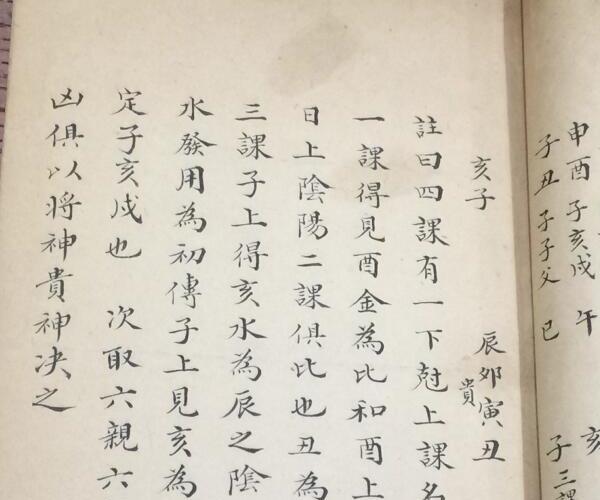 申酉 子亥戌 午 亥
子丑 子子父 巳 子三課
亥子 辰卯寅丑
貴
註曰四課有一下尅上課名
一課得見酉金為比和酉上
日上陰陽二課俱比也丑為
三課子上得亥水為辰之陰
水發用為初傳子上見亥為
定子亥戌也 次取六親六
凶俱以將神貴神决之